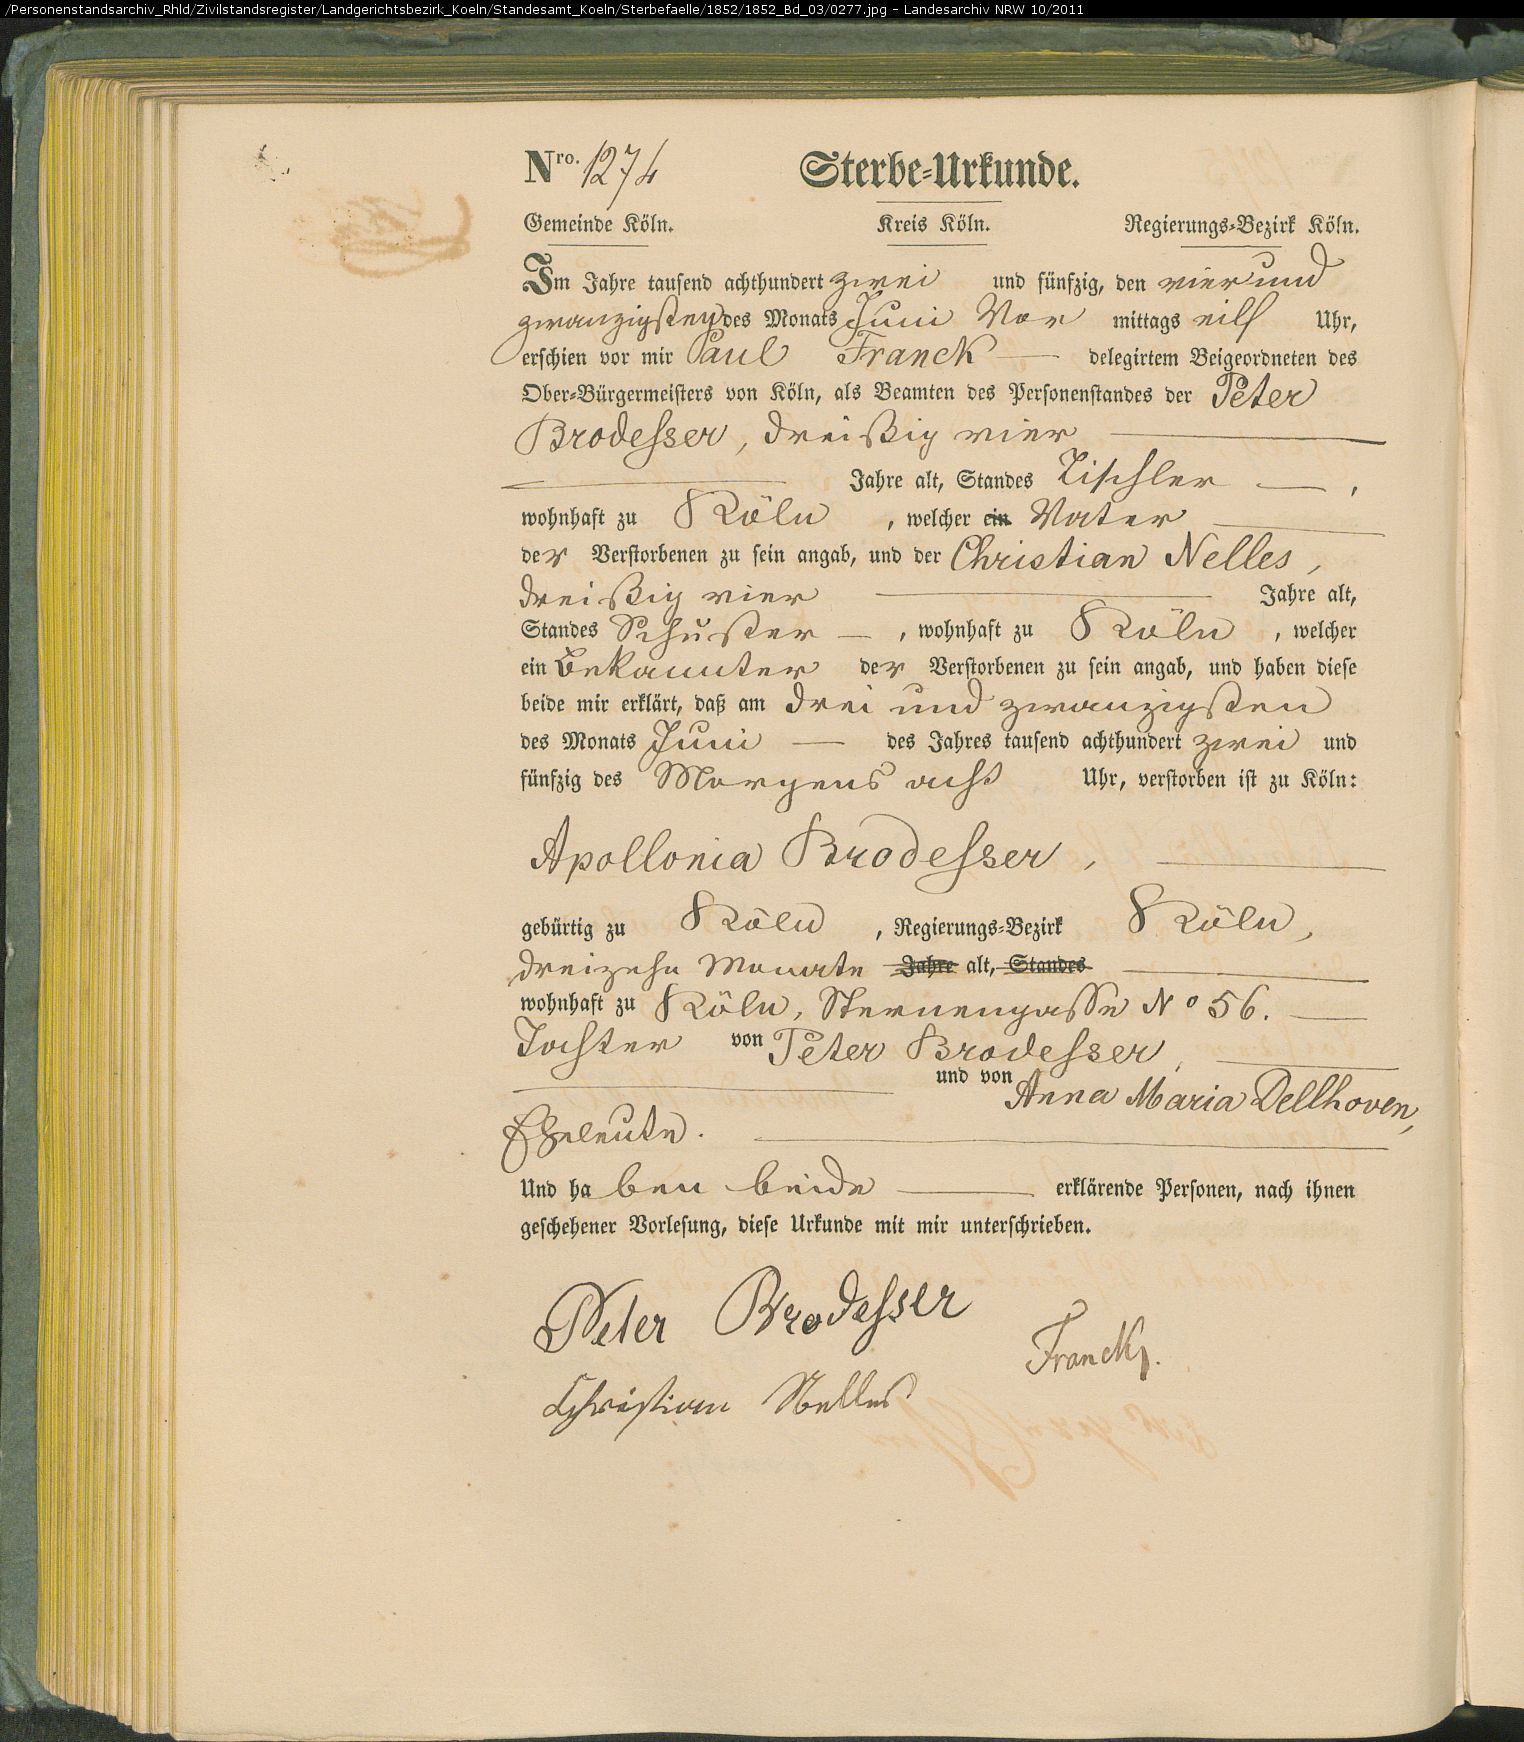 /Personenstandsarchiv_Rhld/Zivilstandsregister/Landgerichtsbezirk_Koeln/Standesamt_Koeln/Sterbefaelle/1852/1852_Bd_03/0277.jpg - Landesarchiv NRW 10/2011
Nro. 1274 Sterbe-Urkunde.
Gemeinde Köln. Kreis Köln. Regierungs-Bezirk Köln.
Im Jahre tausend achthundert zwei und fünfzig, den vier und
zwanzigsten des Monats Juni Vor mittags eilf Uhr,
erschien vor mir Paul Franck — delegirtem Beigeordneten des
Ober-Bürgermeisters von Köln, als Beamten des Personenstandes der Peter
Brodesser, dreißig vier —
— Jahre alt, Standes Tischler —,
wohnhaft zu Köln, welcher ein Vater —
der Verstorbenen zu sein angab, und der Christian Nelles,
dreißig vier — Jahre alt,
Standes Schuster —, wohnhaft zu Köln, welcher
ein Bekannter der Verstorbenen zu sein angab, und haben diese
beide mir erklärt, daß am drei und zwanzigsten
des Monats Juni — des Jahres tausend achthundert zwei und
fünfzig des Morgens acht Uhr, verstorben ist zu Köln:
Apollonia Brodesser, —
gebürtig zu Köln, Regierungs-Bezirk Köln,
dreizehn Monate Jahre alt, Standes —
wohnhaft zu Köln, Sternengasse No 56. —
Tochter von Peter Brodesser, —
— und von Anna Maria Dellhoven,
Eheleute. —
Und ha ben beide — erklärende Personen, nach ihnen
geschehener Vorlesung, diese Urkunde mit mir unterschrieben.
Peter Brodesser
Franck.
Christian Nelles